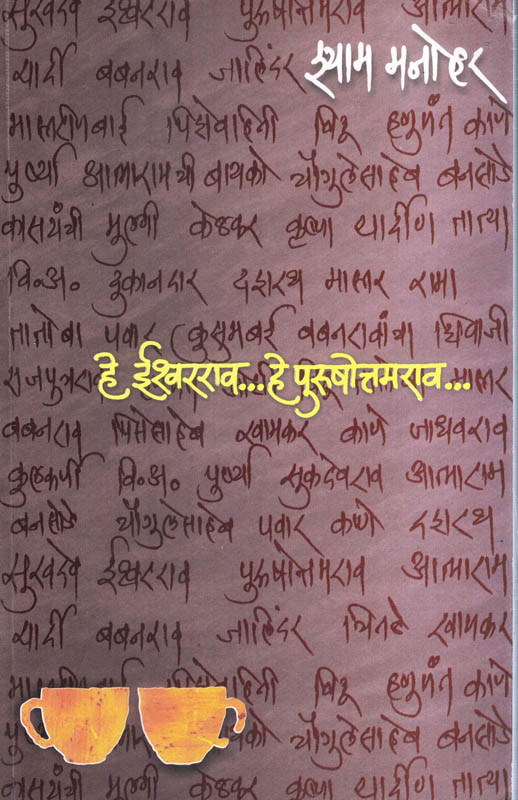 सुखदेव ईश्वरराव पुरूषोत्तमराव आत्माराम
श्याम मनोहर
यादी बबनराव जालिंदर
मास्तरीणबाई पिसेवहिनी चिटू हणुमंत काणे
पुर्ष्या आत्मारामची बायको चौगुलेसाहेब बनसोडे
कासयंत्री मुलगी केळकर कृष्णा यादीण तात्या
वि.अ. दुकानदार दशरथ मास्तर रामा
तातोबा पवार (कुसुमबई बबनरावांचा शिवाजी
हे ईश्वरराव...हे पुरूषोत्तमराव...
मास्तर
बबनराव पिसेसाहेब खामकर काणे जाधवराव
कुळकर्णी वि.अ. पुर्ष्या सुकदेवराव आत्माराम
बनसोडे चौगुलेसाहेब पवार काणे दशरथ
सुखदेव ईश्वरराव पुरूषोत्तमराव आत्माराम
यादी बबनराव जालिंदर चितळे खामकर
पिसेवहिनी चिटू हणुमंत काणे
बायको चौगुलेसाहेब बनसोडे
कासयंत्री मुलगी केळकर कृष्णा यादीण तात्या